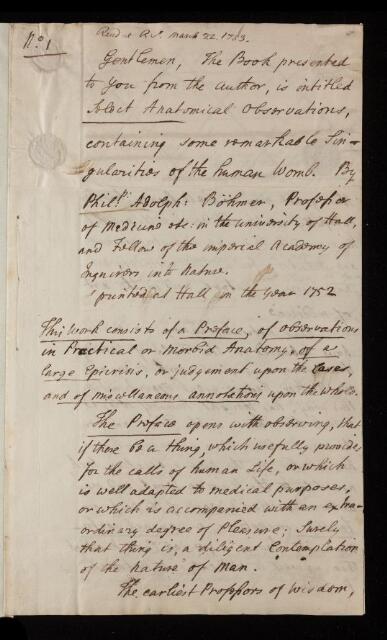 No. 1
Read at R.S. March 22. 1753.
Gentlemen, The Book presented
to You from the author, is intitled
Select Anatomical Observations,
containing some remarkable Sin=
gularities of the human Womb. By
Phil: Adolph: Böhmer, Professor
of Medicine etc: in the university of Hall,
and Fellow of the imperial Academy of
Inquirers into Nature.
printed at Hall in the Year 1752
This Work consists of a Preface, of observations
in Practical or Morbid Anatomy, of a
large Epicrisis, or judgement upon the Cases,
and of miscellaneous annotations upon the whole.
The Preface opens with observing, that
if there be a thing, which usefully provides
for the calls of human Life, or which
is well adapted to medical purposes,
or which is accompanied with an extra=
ordinary degree of Pleasure; Surely
that thing is, a diligent Contemplation
of the nature of Man.
The earliest Professors of Wisdom,